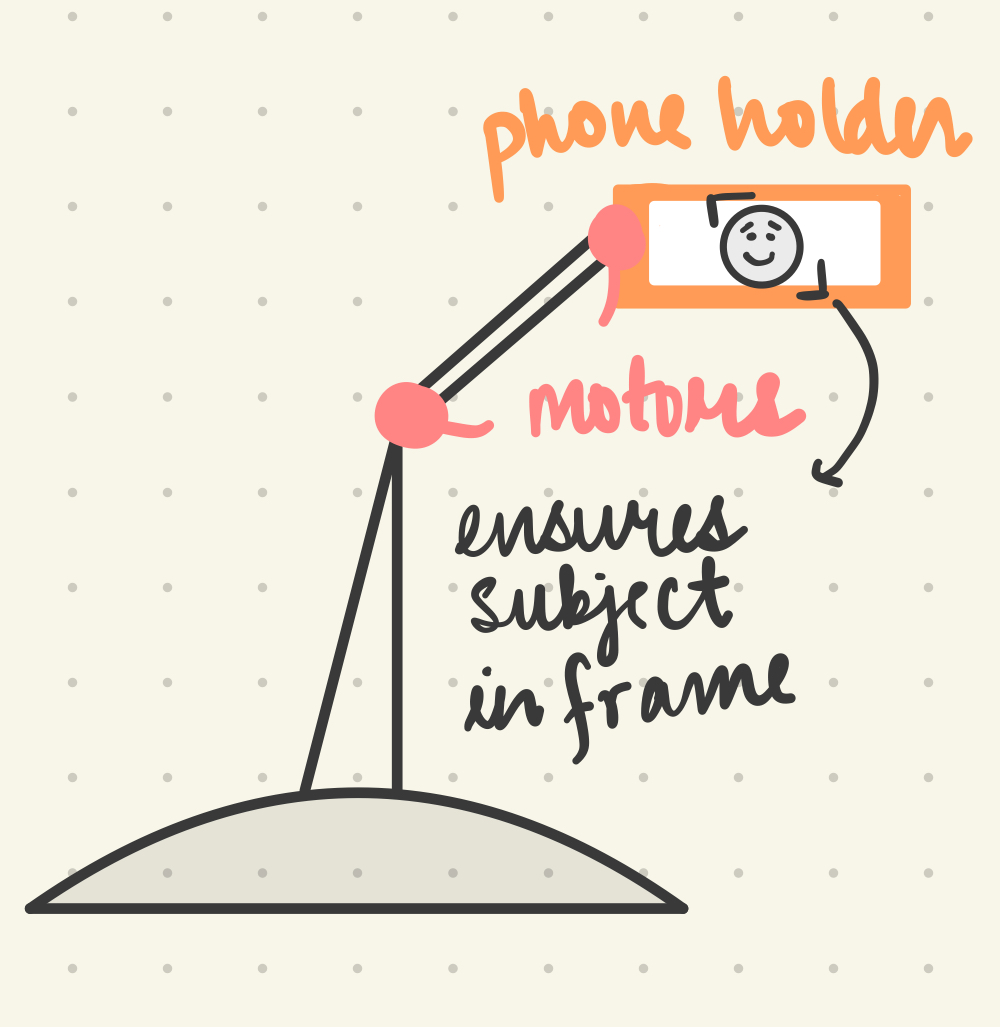 phone holder
motors
ensures
subject
in frame